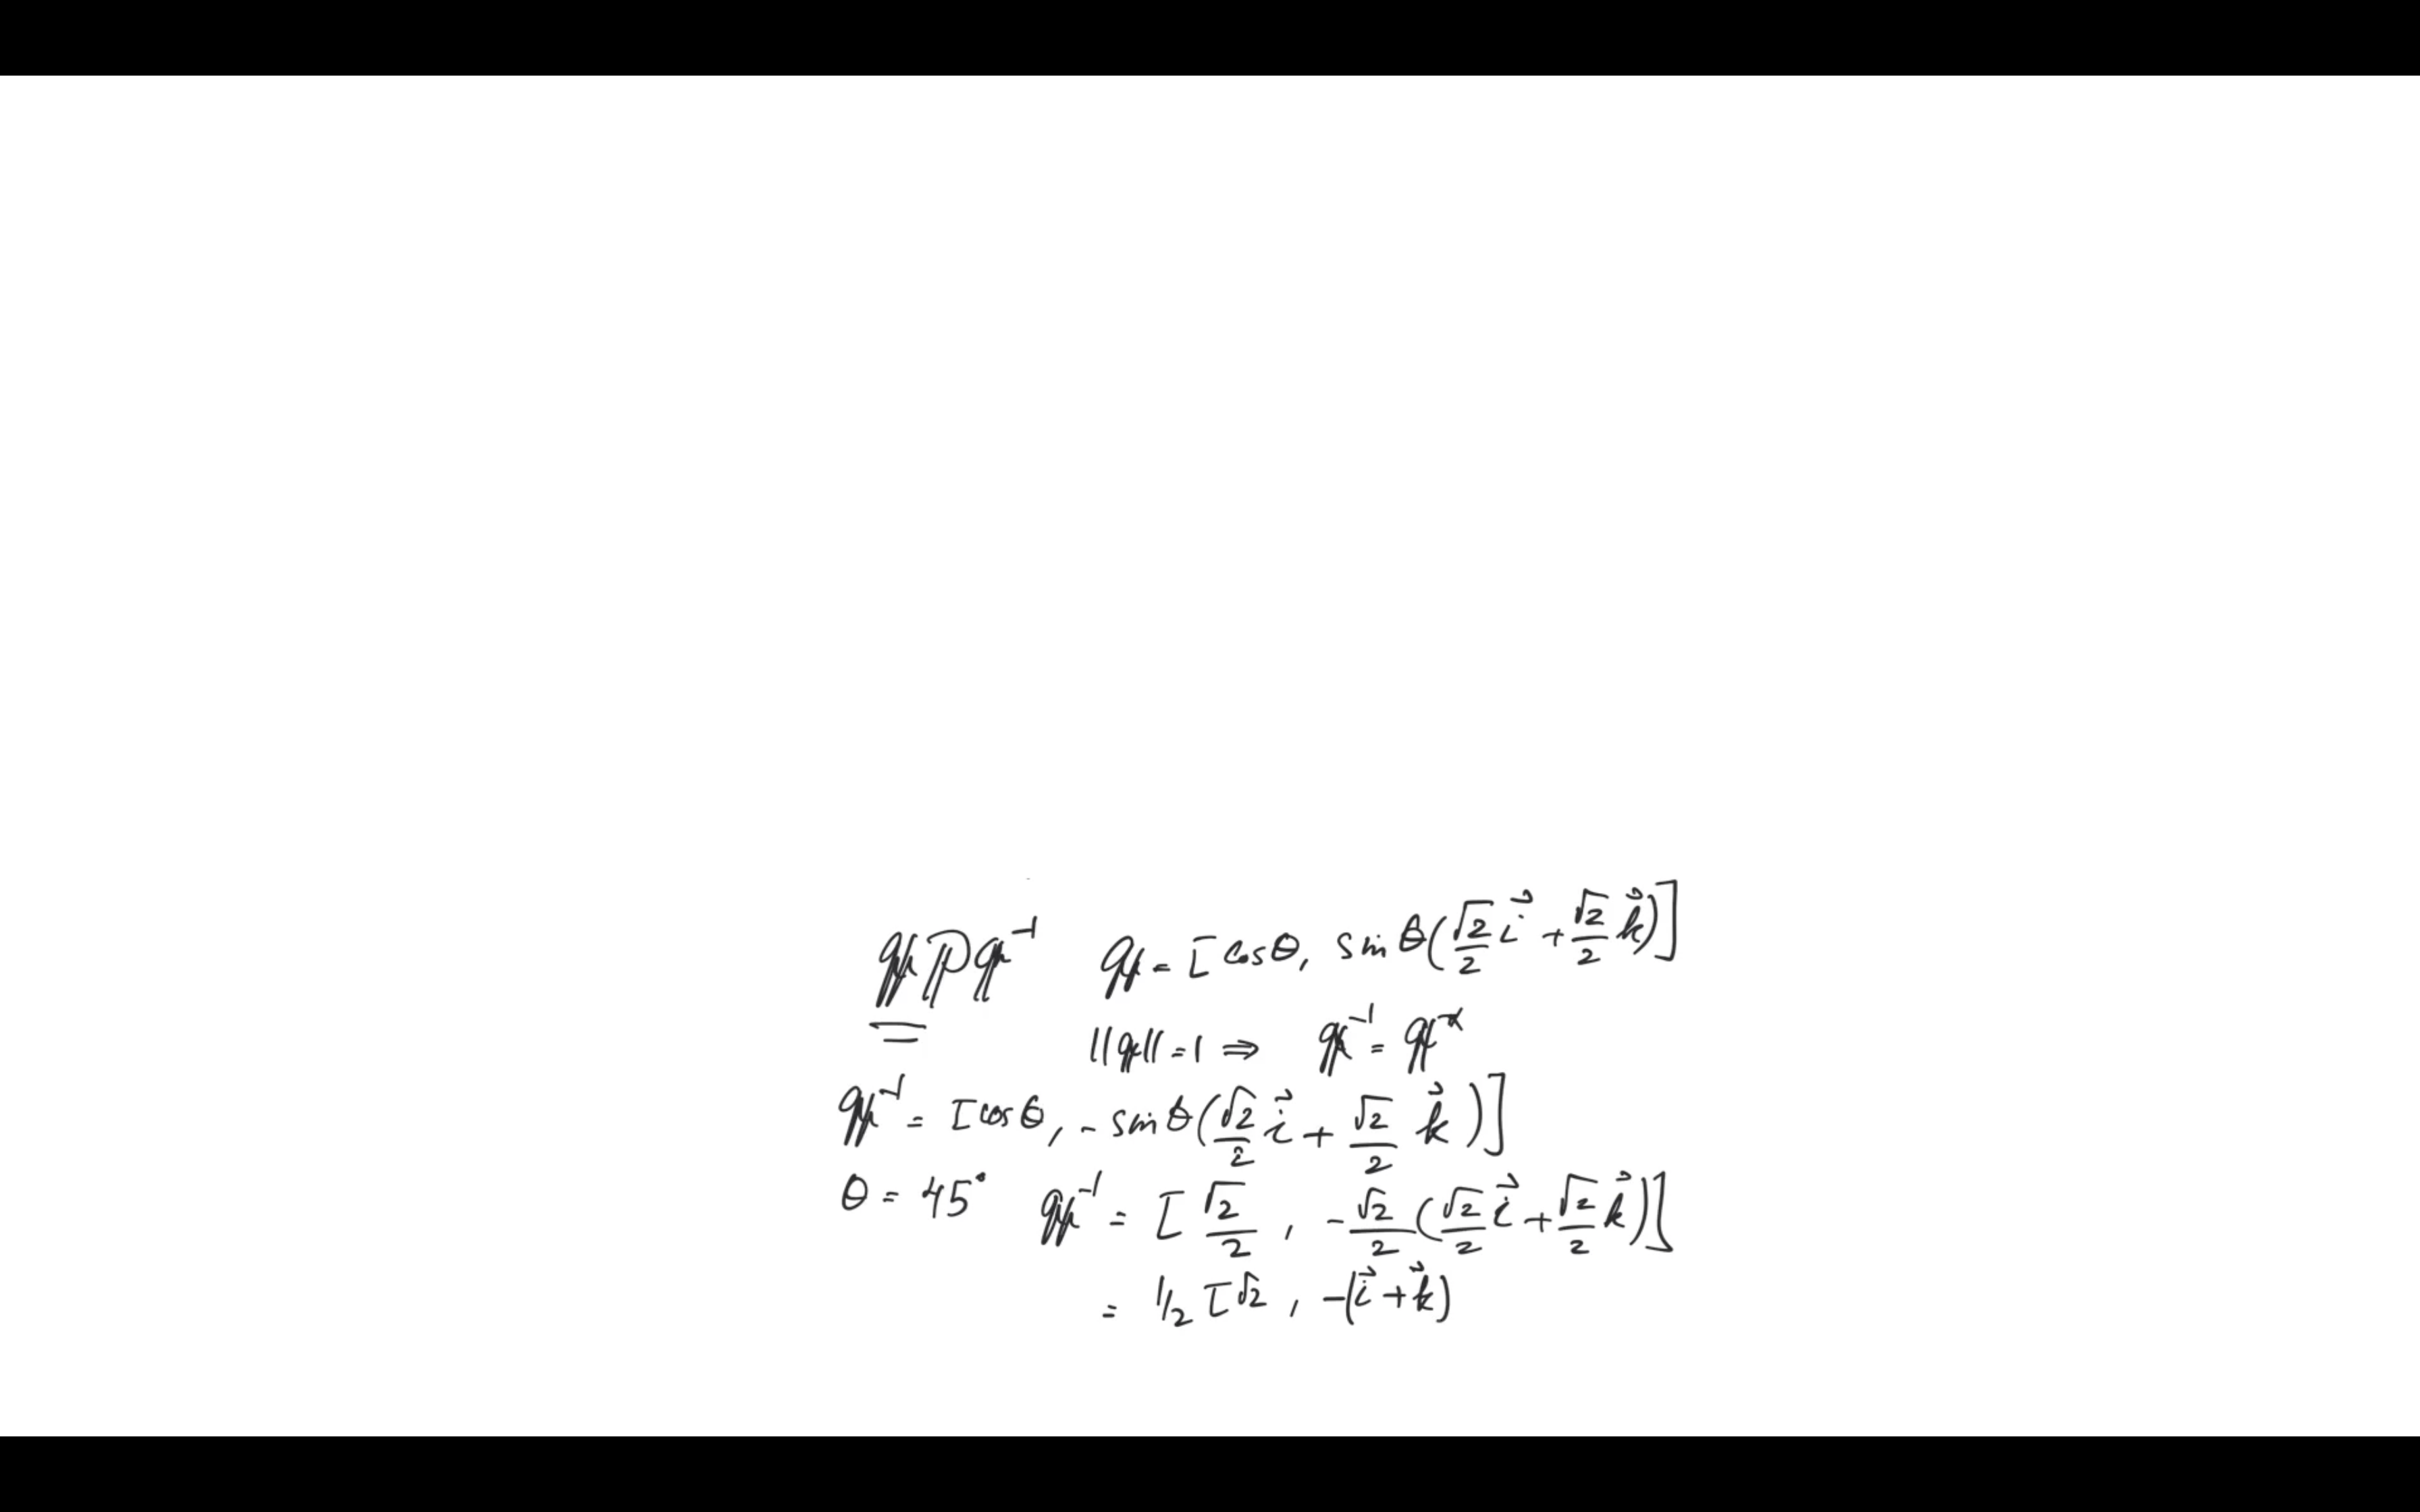 qpq⁻¹ q = [cosθ, sinθ(√2/2 i⃗ + √2/2 k⃗)]
||q|| = 1 ⇒ q⁻¹ = q*
q⁻¹ = [cosθ, -sinθ(√2/2 i⃗ + √2/2 k⃗)]
θ = 45° q⁻¹ = [√2/2, -√2/2(√2/2 i⃗ + √2/2 k⃗)]
= 1/2 [√2, -(i⃗ + k⃗)